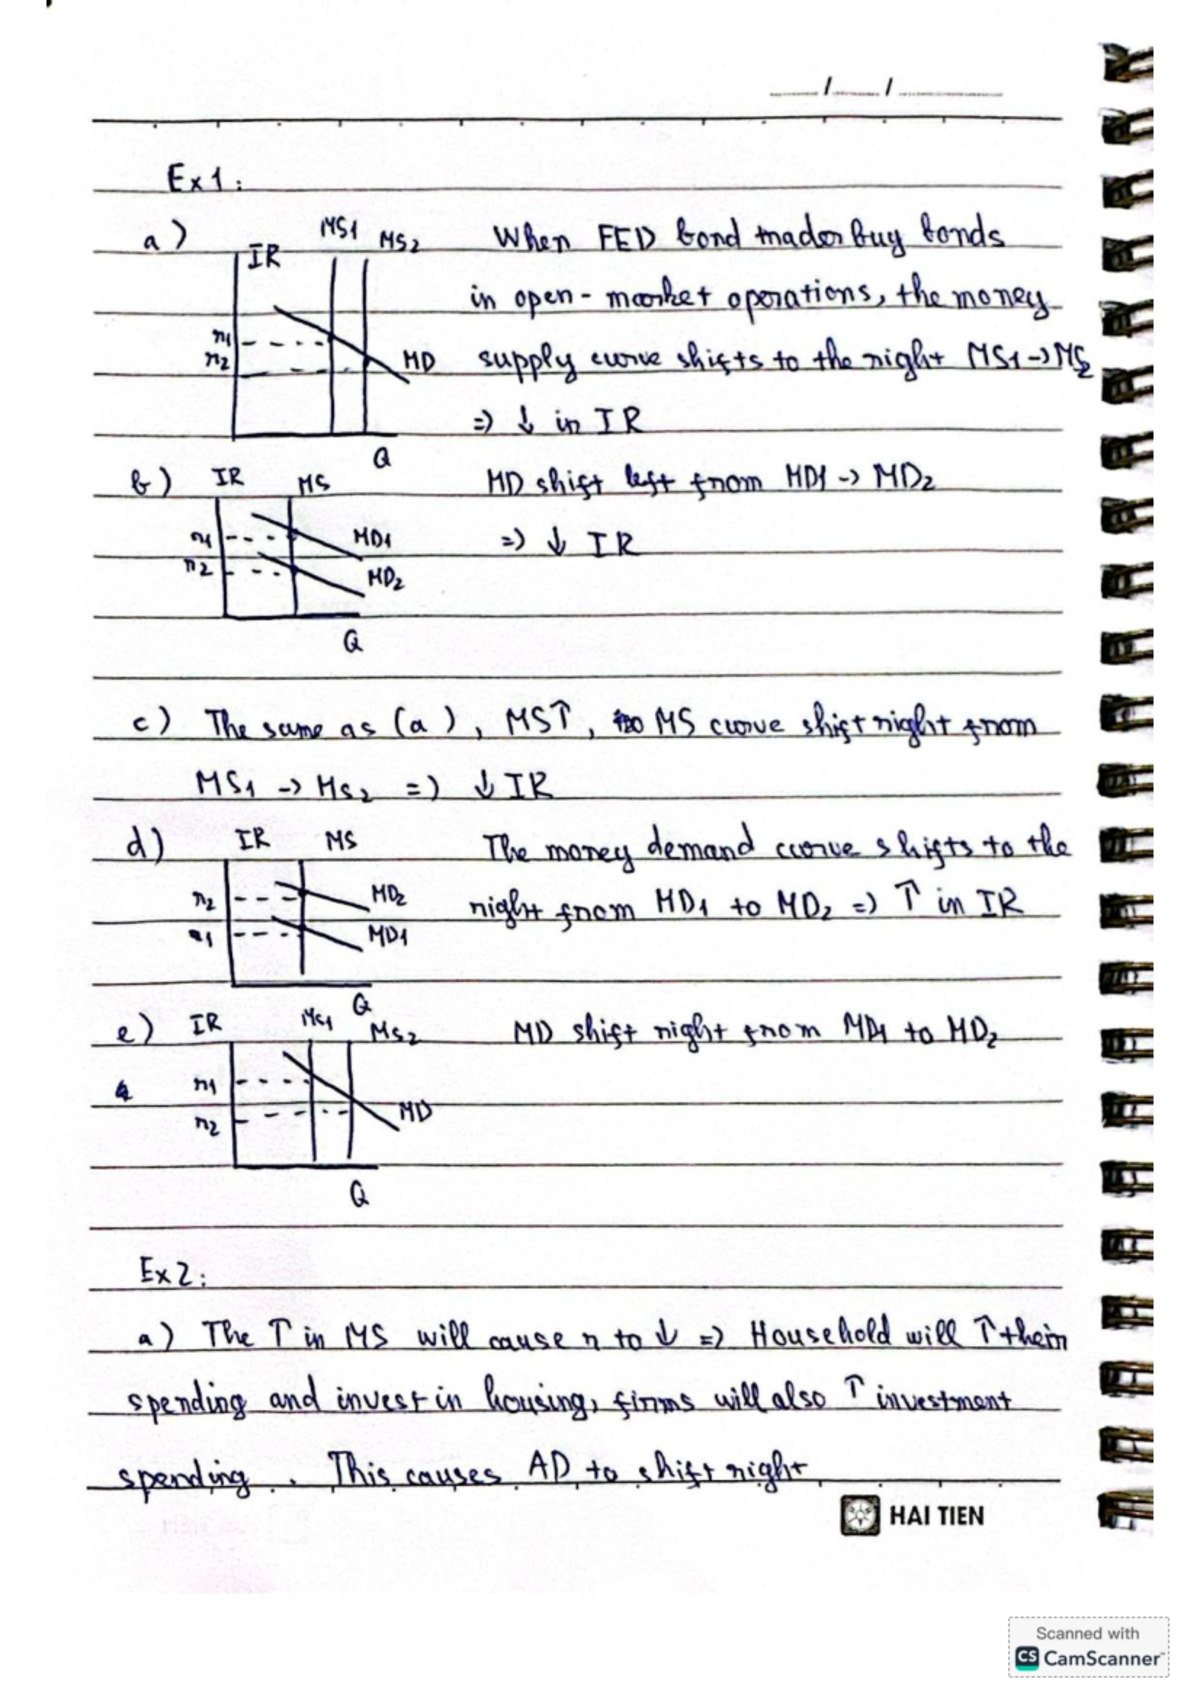 ___/___/______
Ex1:
a) IR MS1 MS2 When FED bond trader buy bonds
in open-market operations, the money
r1
r2 MD supply curve shifts to the right MS1 -> MS2
=) ↓ in IR
Q
b) IR MS MD shift left from MD1 -> MD2
r1 MD1 =) ↓ IR
r2 MD2
Q
c) The same as (a), MS↑, MS curve shift right from
MS1 -> MS2 =) ↓ IR
d) IR MS The money demand curve shifts to the
r2 MD2 right from MD1 to MD2 =) ↑ in IR
r1 MD1
Q
e) IR MS1 MS2 MD shift right from MD1 to MD2
r1
r2 MD
Q
Ex2:
a) The ↑ in MS will cause r to ↓ =) Household will ↑ their
spending and invest in housing, firms will also ↑ investment
spending. This causes AD to shift right
HAI TIEN
Scanned with
CS CamScanner